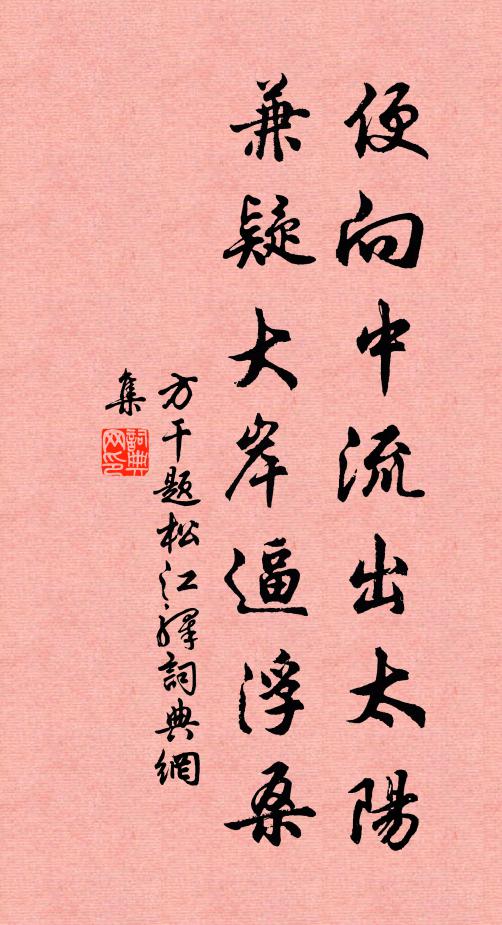 便向中流出太陽
兼疑大岸逼浮桑
方干題松江驛詞典網
集
詞典
网印